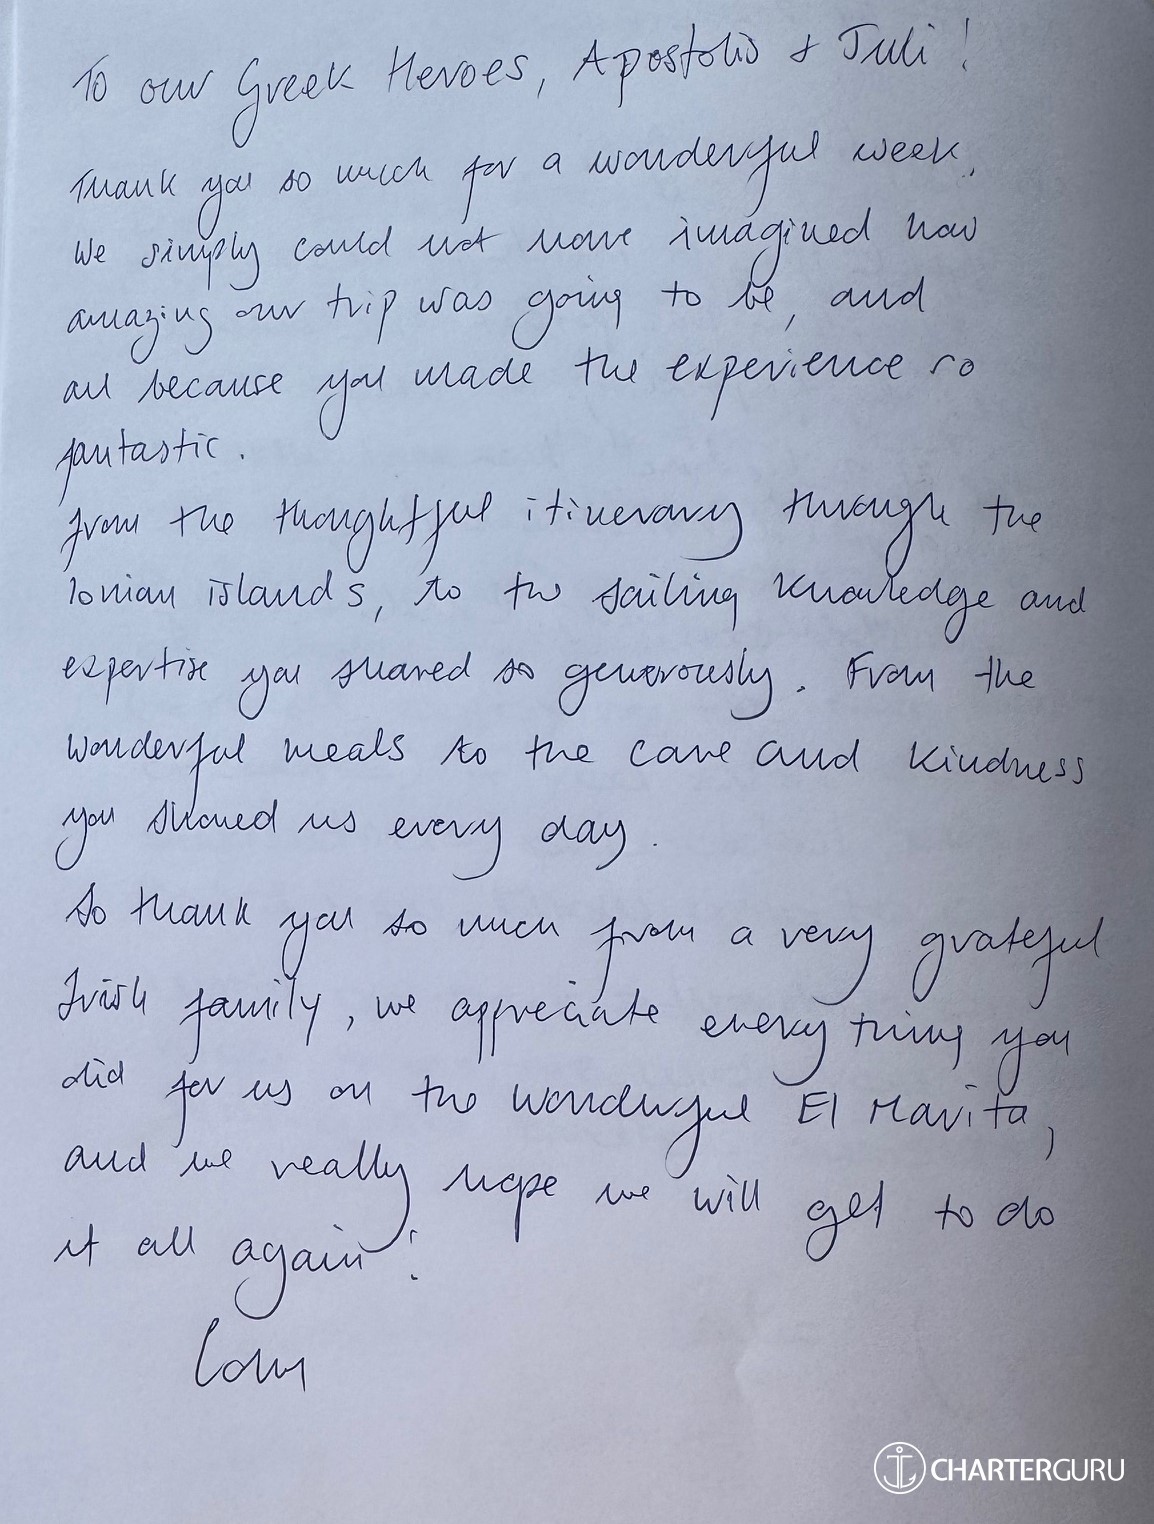 To our Greek Heroes, Apostolis & Juli!
Thank you so much for a wonderful week.
We simply could not have imagined how
amazing our trip was going to be, and
all because you made the experience so
fantastic.
From the thoughtful itinerary through the
Ionian islands, to the sailing knowledge and
expertise you shared so generously. From the
wonderful meals to the care and kindness
you showed us every day.
So thank you so much from a very grateful
Irish family, we appreciate everything you
did for us on the wonderful El Mavita,
and we really hope we will get to do
it all again!
CHARTERGURU